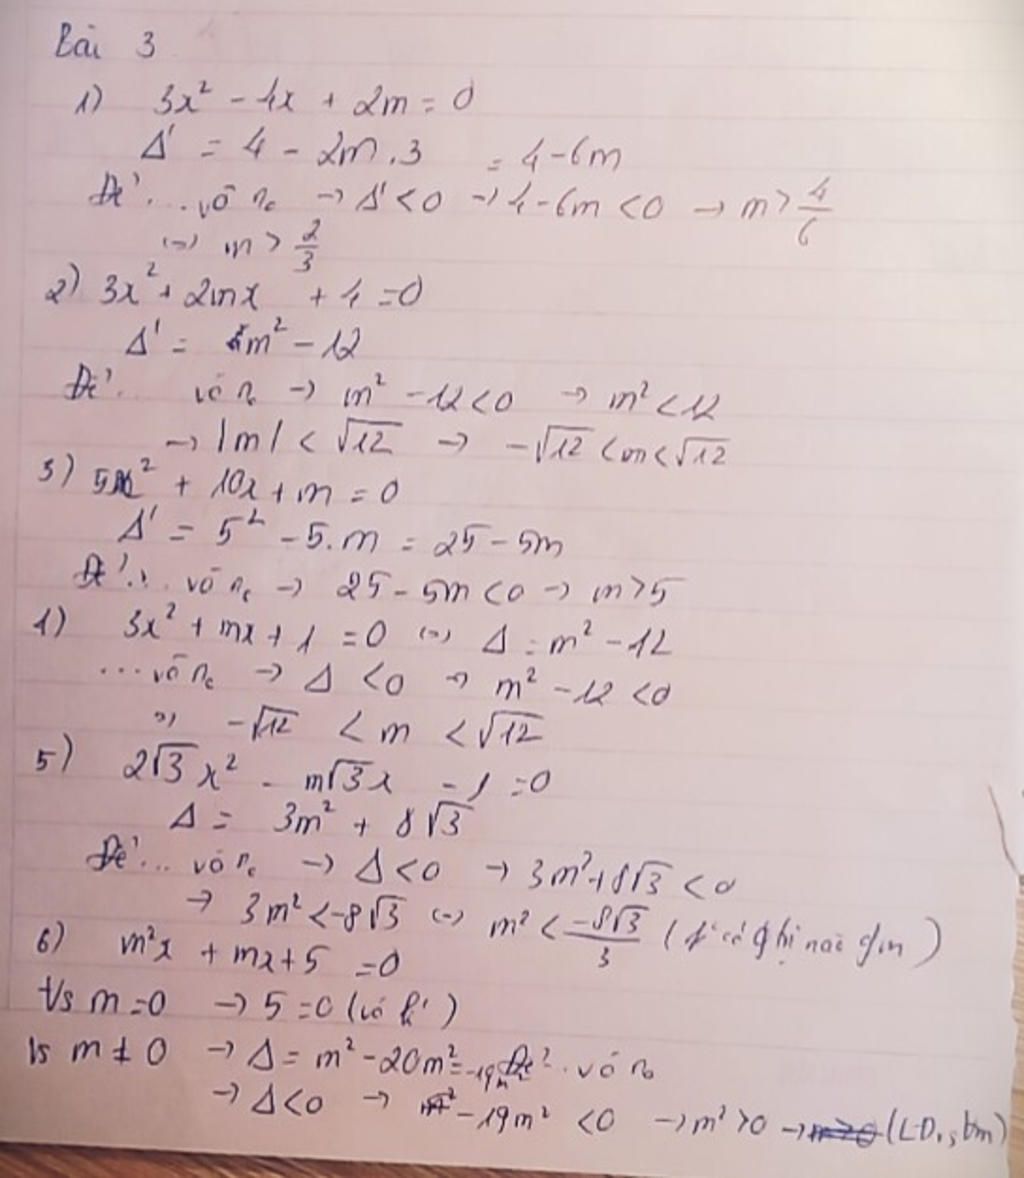 Bài 3
1) 3x² - 4x + 2m = 0
Δ' = 4 - 2m.3 = 4-6m
Để ... vô n₀ → Δ' < 0 → 4-6m < 0 → m > 4/6
(=) m > 2/3
2) 3x² + 2mx + 4 = 0
Δ' = m² - 12
Để ... vô n₀ → m² - 12 < 0 → m² < 12
→ |m| < √12 → -√12 < m < √12
3) 5x² + 10x + m = 0
Δ' = 5² - 5.m = 25 - 5m
Để ... vô n₀ → 25 - 5m < 0 → m > 5
4) 3x² + mx + 1 = 0 (=) Δ = m² - 12
... vô n₀ → Δ < 0 → m² - 12 < 0
=) -√12 < m < √12
5) 2√3 x² - m√3x - 1 = 0
Δ = 3m² + 8√3
Để ... vô n₀ → Δ < 0 → 3m² + 8√3 < 0
→ 3m² < -8√3 (=) m² < -8√3/3 (
6) m²x + mx + 5 = 0
m = 0 → 5 = 0 (vô lí)
m ≠ 0 → Δ = m² - 20m² = -19m² Để ... vô n₀
→ Δ < 0 → -19m² < 0 → m² > 0 → (LĐ